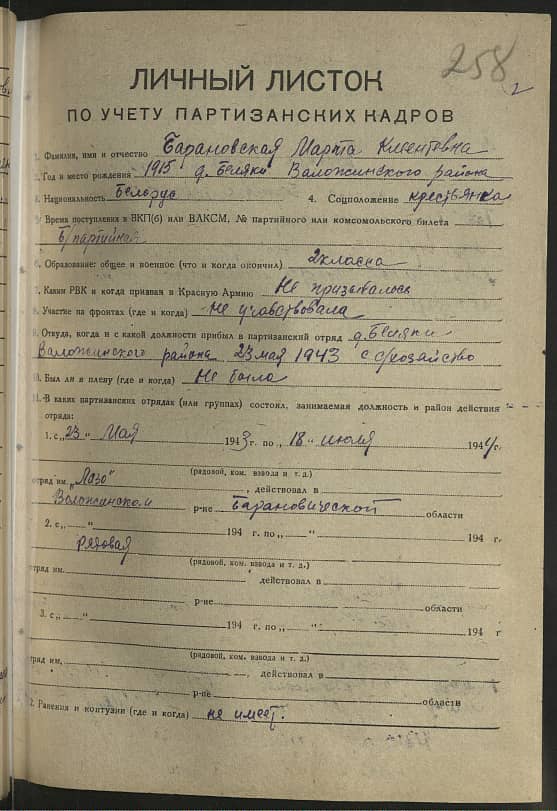 258
2
ЛИЧНЫЙ ЛИСТОК
ПО УЧЕТУ ПАРТИЗАНСКИХ КАДРОВ
1. Фамилия, имя и отчество Барановская Марта
2. Год и место рождения 1915 д. Беляки Валожинского района
3. Национальность Белорус 4. Соцположение крестьянка
5. Время поступления в ВКП(б) или ВЛКСМ, № партийного или комсомольского билета
Б/партийная
6. Образование: общее и военное (что и когда окончил) 2 класса
7. Каким РВК и когда призван в Красную Армию Не призывалось
8. Участие на фронтах (где и когда) Не участвовала
9. Откуда, когда и с какой должности прибыл в партизанский отряд д. Беляки
Валожинского района 23 мая 1943 с с/хозяйство
10. Был ли в плену (где и когда) Не была
11. В каких партизанских отрядах (или группах) состоял, занимаемая должность и район действия
отряда:
1. с „23" Мая 1943 г. по „18" июля 1944 г.
(рядовой, ком. взвода и т. д.)
отряд им. „Лазо", действовал в
Воложинском р-не Барановической области
2. с „ " 194 г. по „ " 194 г
Рядовая
(рядовой, ком. взвода и т. д.)
отряд им. , действовал в
р-не области
3. с „ " 194 г. по „ " 194 г
(рядовой, ком. взвода и т. д.)
отряд им. , действовал в
р-не области
12. Ранения и контузии (где и когда) не имеет.